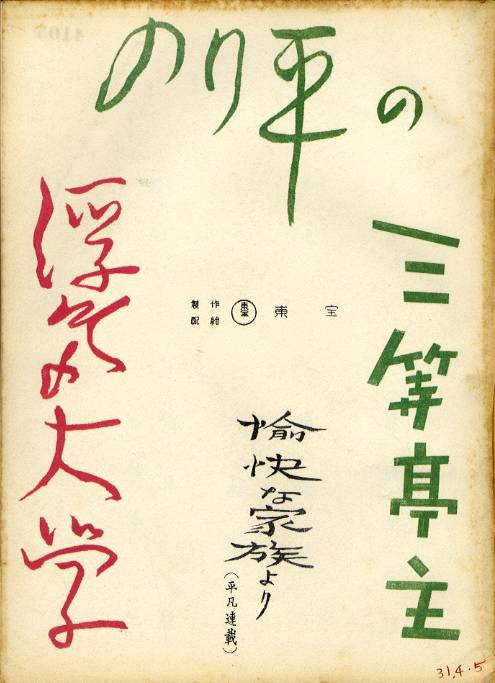 のり平の
三等亭主
愉快な家族より
(平凡連載)
製作
配給
東宝
浮気大学
31.4.5